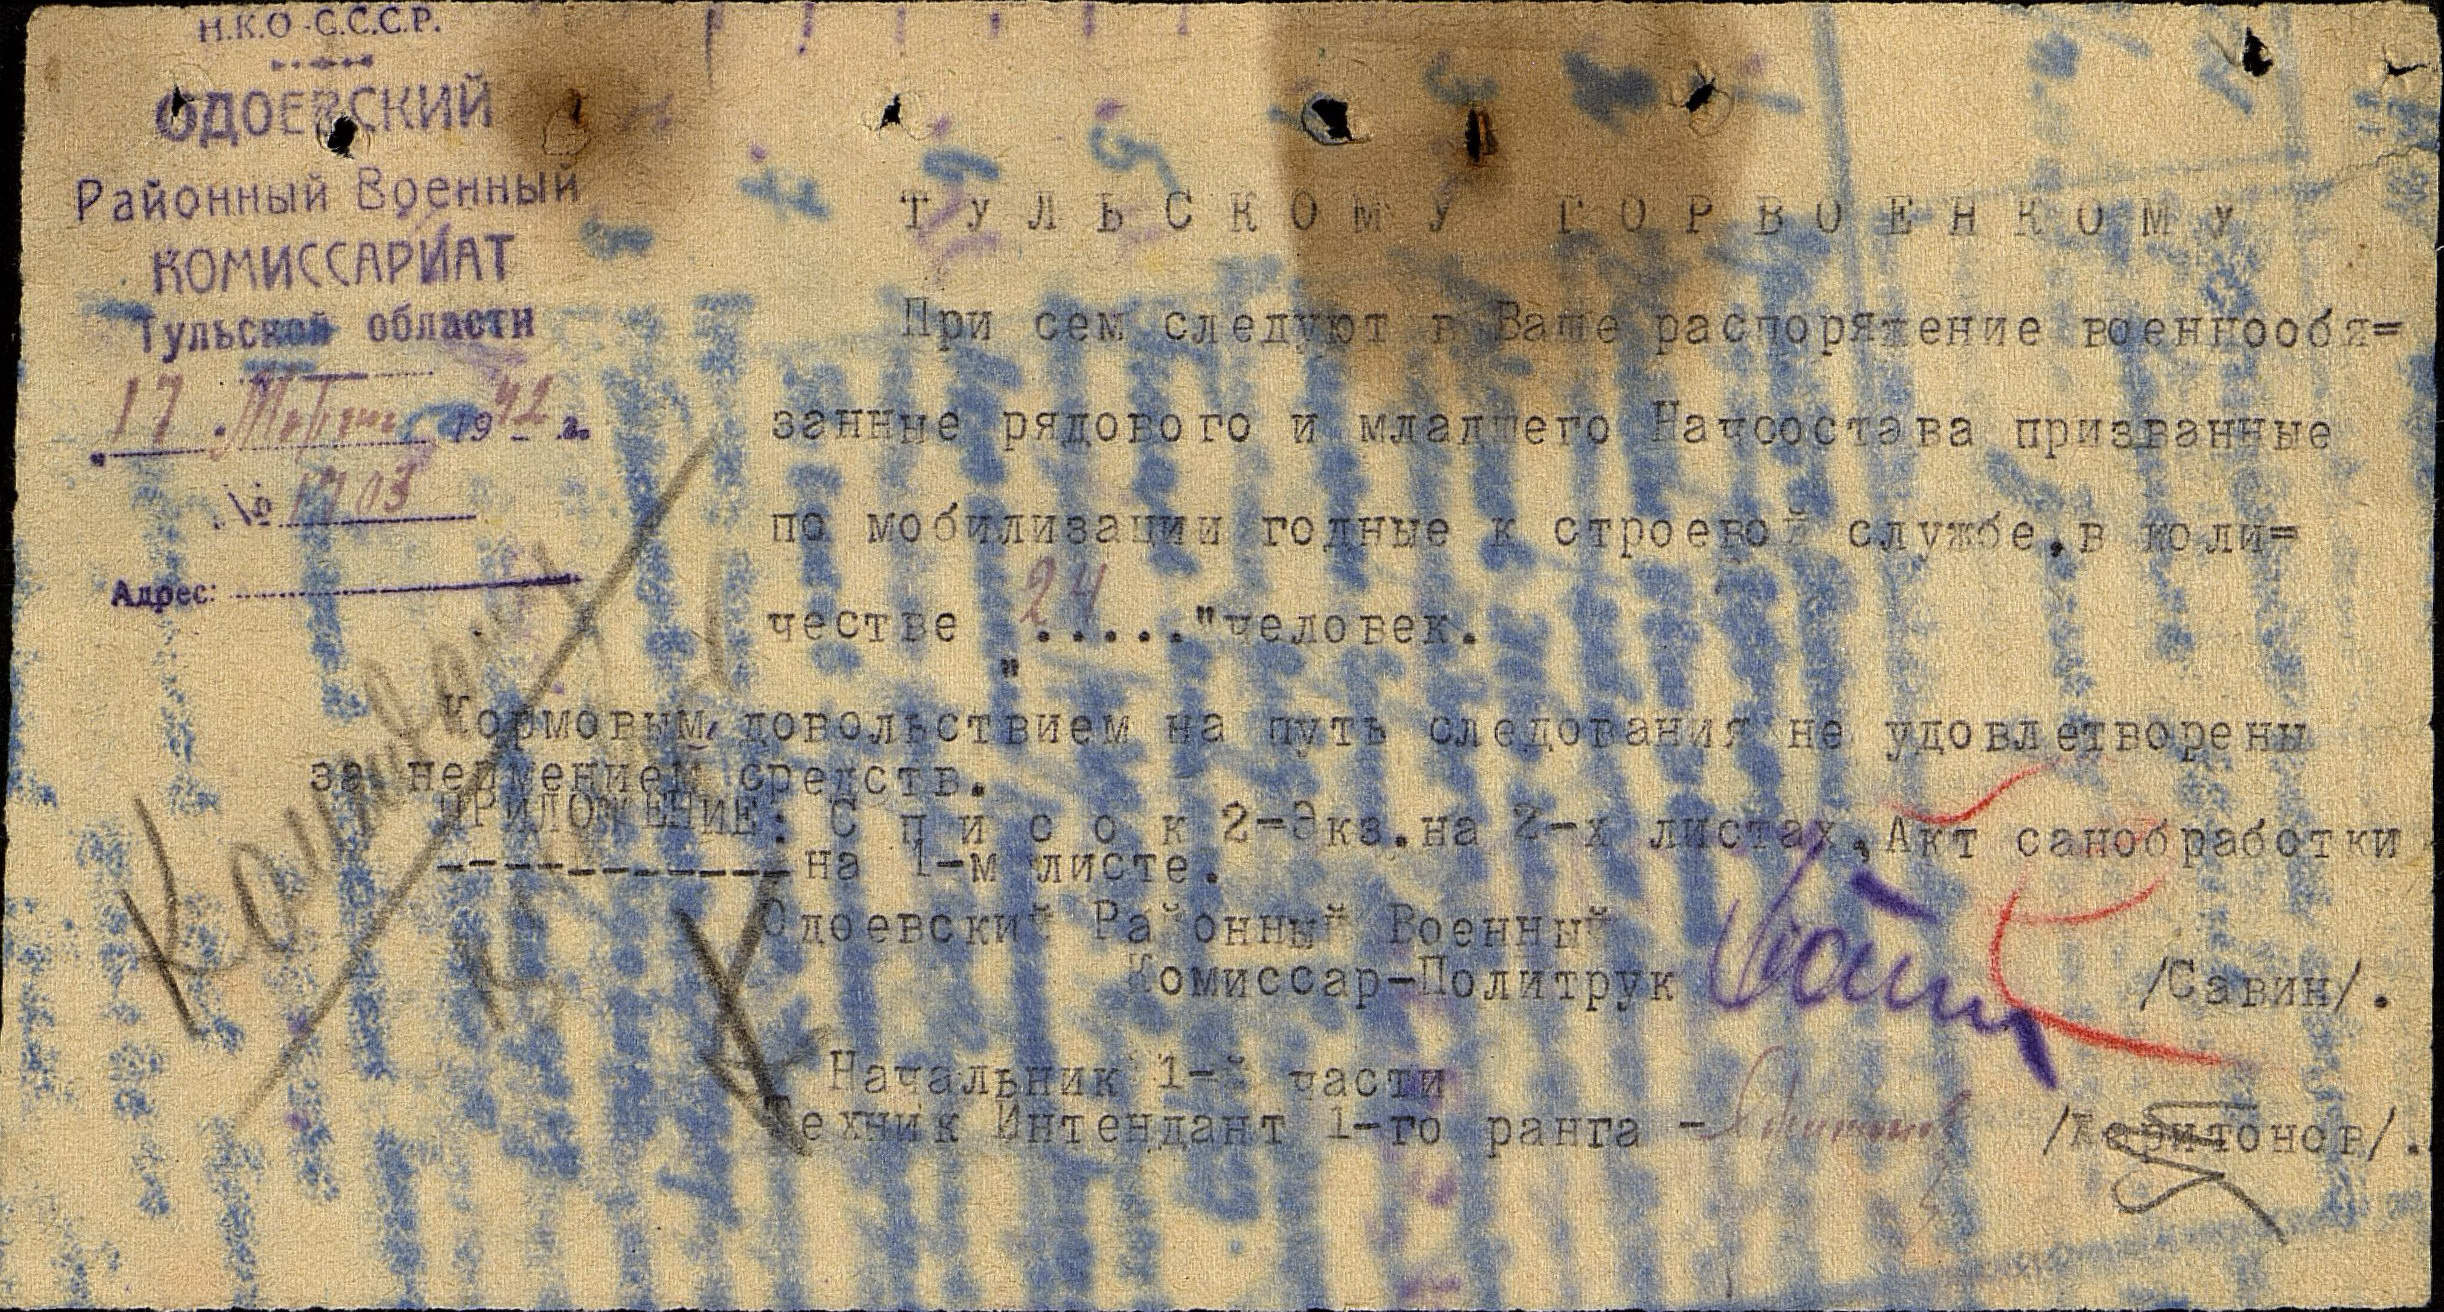 Н.К.О. С.С.С.Р.
ОДОЕВСКИЙ
Районный Военный
КОМИССАРИАТ
Тульской области
17 1942 г.
№ 1703
Адрес:
ТУЛЬСКОМУ ГОРВОЕНКОМУ
При сем следуют в Ваше распоряжение военнообя=
занные рядового и младшего Начсостава призванные
по мобилизации годные к строевой службе,в коли=
честве "24....."человек.
Кормовым довольствием на путь следования не удовлетворены
за неимением средств.
ПРИЛОЖЕНИЕ: Список 2-Экз.на 2-х листах,Акт санобработки
------------на 1-м листе.
Одоевский Районный Военный
Комиссар-Политрук /Савин/.
Начальник 1-й части
Техник Интендант 1-го ранга - /Харитонов/.